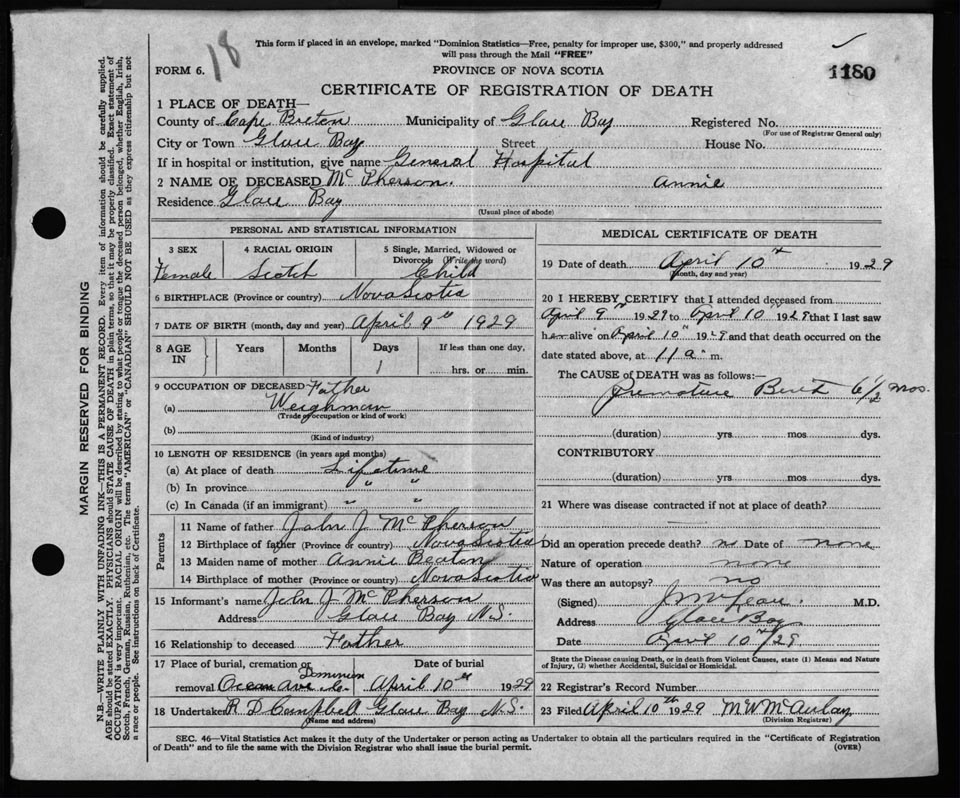 18
This form if placed in an envelope, marked "Dominion Statistics—Free, penalty for improper use, $300," and properly addressed
will pass through the Mail "FREE"
FORM 6.
PROVINCE OF NOVA SCOTIA
1180
CERTIFICATE OF REGISTRATION OF DEATH
1 PLACE OF DEATH—
County of Cape Breton Municipality of Glace Bay Registered No.
(For use of Registrar General only)
City or Town Glace Bay Street House No.
If in hospital or institution, give name General Hospital
2 NAME OF DECEASED McPherson. Annie
Residence Glace Bay
(Usual place of abode)
PERSONAL AND STATISTICAL INFORMATION
3 SEX 4 RACIAL ORIGIN 5 Single, Married, Widowed or
Divorced (Write the word)
Female Scotch Child
6 BIRTHPLACE (Province or country) Nova Scotia
7 DATE OF BIRTH (month, day and year) April 9th 1929
8 AGE IN Years Months Days If less than one day,
1 hrs. or min.
9 OCCUPATION OF DECEASED Father
(a) Weighman
(Trade, occupation or kind of work)
(b)
(Kind of industry)
10 LENGTH OF RESIDENCE (in years and months)
(a) At place of death Lifetime
(b) In province " "
(c) In Canada (if an immigrant) " "
Parents
11 Name of father John J McPherson
12 Birthplace of father (Province or country) Nova Scotia
13 Maiden name of mother Annie Beaton
14 Birthplace of mother (Province or country) Nova Scotia
15 Informant's name John J McPherson
Address Glace Bay N.S.
16 Relationship to deceased Father
17 Place of burial, cremation or Date of burial
Dominion
removal Ocean Ave. April 10th 1929
18 Undertaker R D Campbell Glace Bay N.S.
(Name and address)
MEDICAL CERTIFICATE OF DEATH
19 Date of death April 10th 1929
(Month, day and year)
20 I HEREBY CERTIFY that I attended deceased from
April 9th 1929 to April 10th 1929 that I last saw
her alive on April 10th 1929 and that death occurred on the
date stated above, at 11 a. m.
The CAUSE of DEATH was as follows:—
Premature Birth 6 1/2 mos.
(duration) yrs mos dys.
CONTRIBUTORY
(duration) yrs. mos. dys.
21 Where was disease contracted if not at place of death?
Did an operation precede death? no Date of none
Nature of operation none
Was there an autopsy? no
(Signed) M.D.
Address Glace Bay
Date April 10th/29
State the Disease causing Death, or in death from Violent Causes, state (1) Means and Nature
of Injury, (2) whether Accidental, Suicidal or Homicidal.
22 Registrar's Record Number
23 Filed April 10th 1929 M W McAulay
(Division Registrar)
SEC. 46—Vital Statistics Act makes it the duty of the Undertaker or person acting as Undertaker to obtain all the particulars required in the "Certificate of Registration
of Death" and to file the same with the Division Registrar who shall issue the burial permit.
(OVER)
MARGIN RESERVED FOR BINDING
N.B.—WRITE PLAINLY WITH UNFADING INK—THIS IS A PERMANENT RECORD. Every item of information should be carefully supplied.
AGE should be stated EXACTLY. PHYSICIANS should STATE CAUSE OF DEATH in plain terms, so that it may be properly classified. Exact statement of
OCCUPATION is very important. RACIAL ORIGIN will be described by stating to what people or tongue the deceased person belonged, whether English, Irish,
Scotch, French, German, Russian, Ruthenian, etc. The terms "AMERICAN" or "CANADIAN" SHOULD NOT BE USED as they express citizenship but not
a race or people. See instructions on back of Certificate.